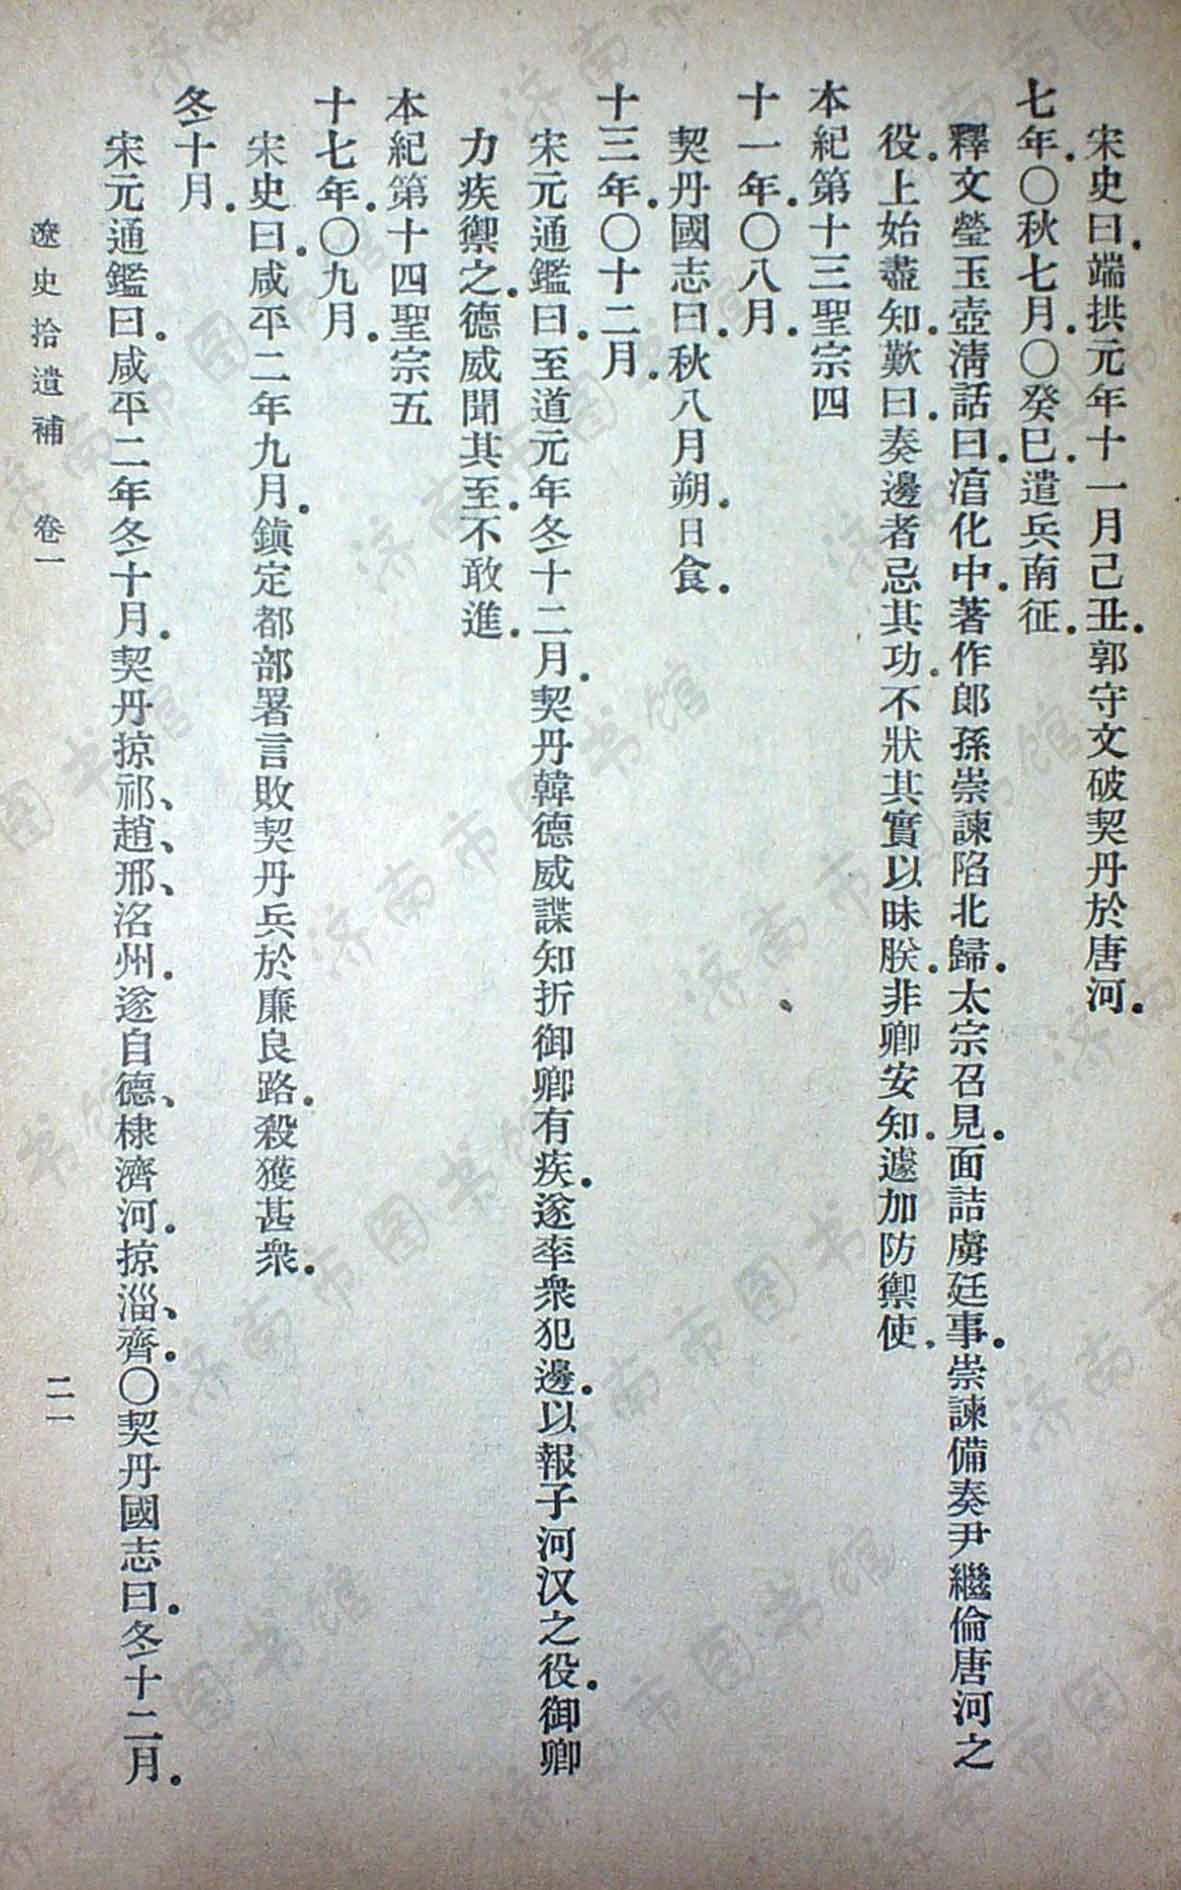 宋史曰.端拱元年十一月己丑.郭守文破契丹於唐河.
七年.〇秋七月.〇癸巳.遣兵南征.
釋文瑩玉壺淸話曰.湻化中.著作郎孫崇諫陷北歸.太宗召見.面詰虜廷事.崇諫備奏尹繼倫唐河之
役.上始盡知.歎曰.奏邊者忌其功.不狀其實以昧朕.非卿安知.遽加防禦使.
本紀第十三聖宗四
十一年.〇八月.
契丹國志曰.秋八月朔.日食.
十三年.〇十二月.
宋元通鑑曰.至道元年冬十二月.契丹韓德威諜知折御卿有疾.遂率衆犯邊.以報子河汊之役.御卿
力疾禦之.德威聞其至.不敢進.
本紀第十四聖宗五
十七年.〇九月.
宋史曰.咸平二年九月.鎭定都部署言敗契丹兵於廉良路.殺獲甚衆.
冬十月.
宋元通鑑曰.咸平二年冬十月.契丹掠祁、趙、邢、洺州.遂自德、棣濟河.掠淄、齊.〇契丹國志曰.冬十二月.
遼史拾遺補 卷一 二一
济南市图书馆